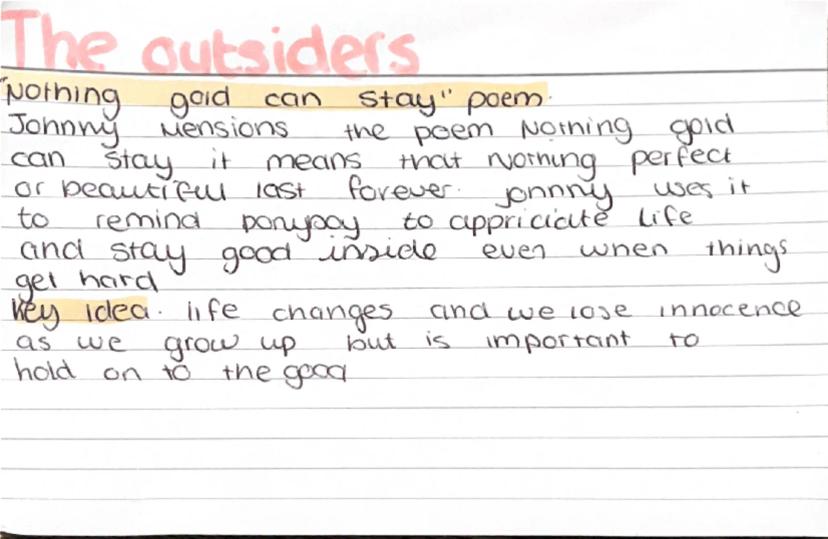 The outsiders
"Nothing gold can stay" poem.
Johnny Mensions the poem Nothing gold
can stay it means that Nothing perfect
or beautiful last forever. Johnny uses it
to remind ponyboy to appriciate life
and stay good inside even when things
get hard
Key idea. life changes and we lose innocence
as we grow up but is important to
hold on to the good